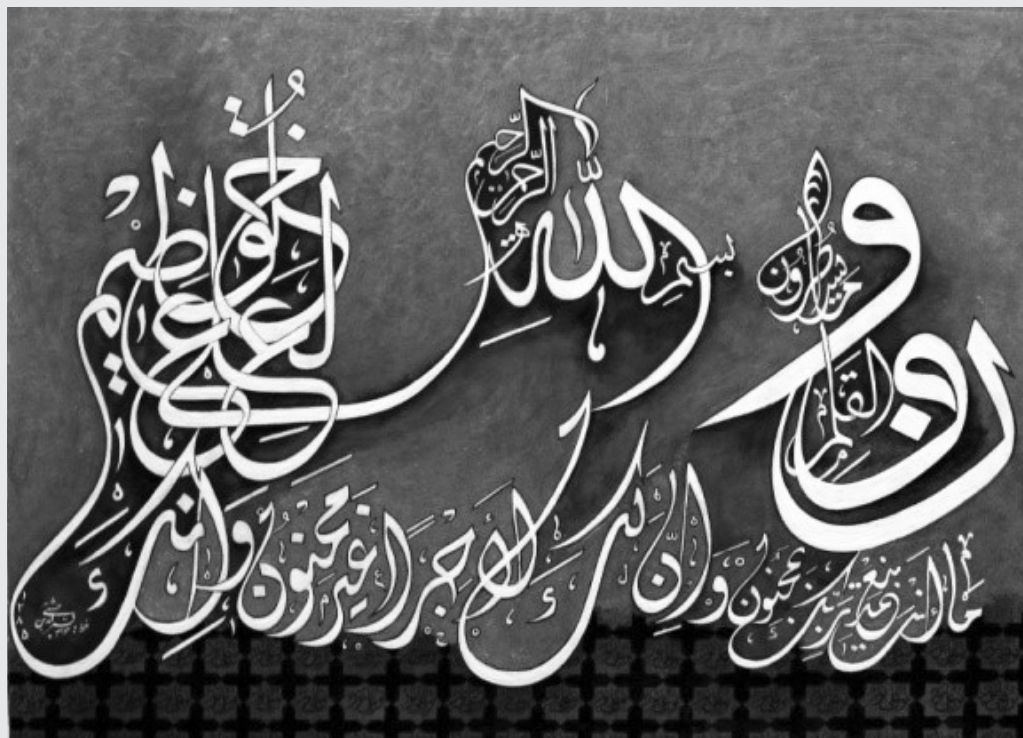 بسم الله الرحمن الرحيم
ن والقلم وما يسطرون
ما أنت بنعمة ربك بمجنون وإن لك لأجرا غير ممنون وإنك
لعلى خلق عظيم